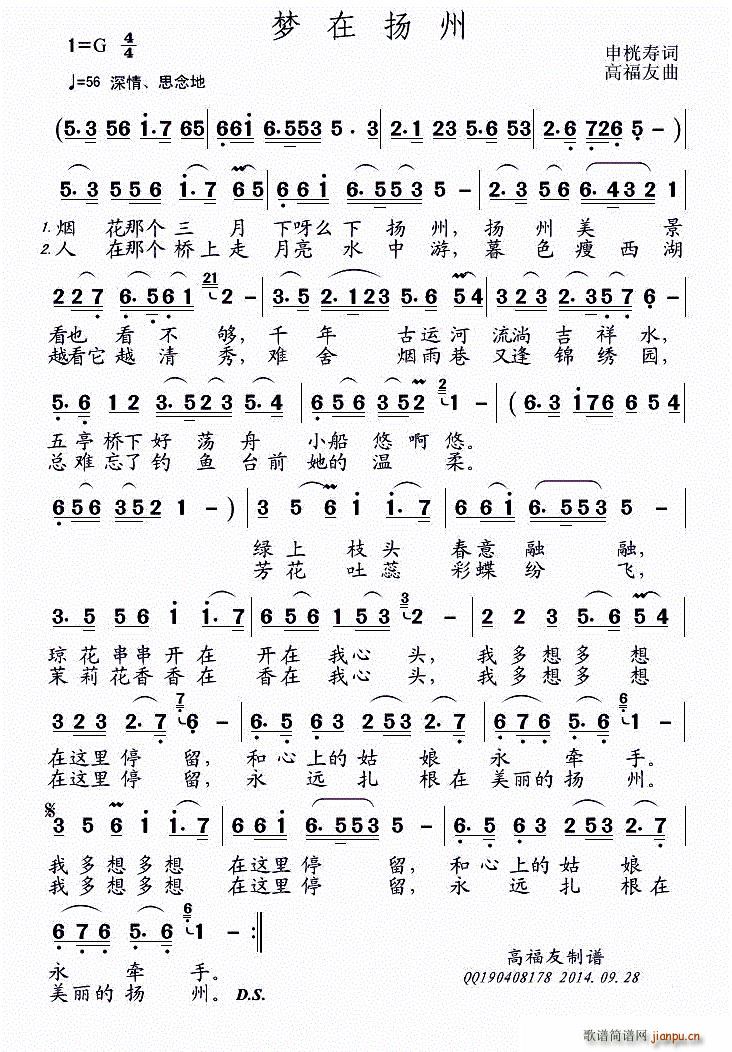 梦在扬州
1=G 4/4
申桄寿词
♩=56 深情、思念地
高福友曲
(5.3 56 i.7 65 | 66i 6.553 5.3 | 2.1 23 5.6 53 | 2.6 726 5 - )
5.3 556 i.7 65 | 66i 6.553 5 - | 2.3 556 6.432 1 |
1.烟 花那个 三 月 下呀么下 扬 州, 扬 州 美 景
2.人 在那个 桥上走 月亮 水 中 游, 暮 色 瘦 西 湖
227 6.561 21 2 - | 3.5 2.123 6.5 654 | 323 2.357 6 - |
看也 看 不 够, 千 年 古运河 流淌 吉 祥 水,
越看它 越 清 秀, 难 舍 烟雨巷 又逢 锦 绣 园,
5.6 12 3.523 5.4 | 656 352 2 1 - | (6.3 i76 654 |
五亭 桥下 好 荡 舟 小船 悠 啊 悠。
总难 忘了 钓 鱼 台前 她的 温 柔。
656 352 1 - ) | 3 5 6 i i.7 | 66i 6.553 5 - |
绿 上 枝 头 春意 融 融,
芳 花 吐 蕊 彩蝶 纷 飞,
3.5 56 i i.7 | 656 153 3 2 - | 2 2 3 5.6 54 |
琼 花 串串 开 在 开在 我心 头, 我 多 想 多 想
茉 莉 花香 香 在 香在 我心 头, 我 多 想 多 想
323 2.7 7 6 - | 6.5 63 2253 2.7 | 676 5.6 6 1 - |
在这里 停 留, 和 心 上的 姑 娘 永 牵 手。
在这里 停 留, 永 远 扎 根在 美丽的 扬 州。
3 5 6 i i.7 | 66i 6.553 5 - | 6.5 63 2253 2.7 |
我 多 想 多 想 在这里 停 留, 和 心 上的 姑 娘
我 多 想 多 想 在这里 停 留, 永 远 扎 根在
676 5.6 6 1 - :||
永 牵 手。
美丽的 扬 州。 D.S.
高福友制谱
QQ190408178 2014.09.28
歌谱简谱网
jianpu.cn